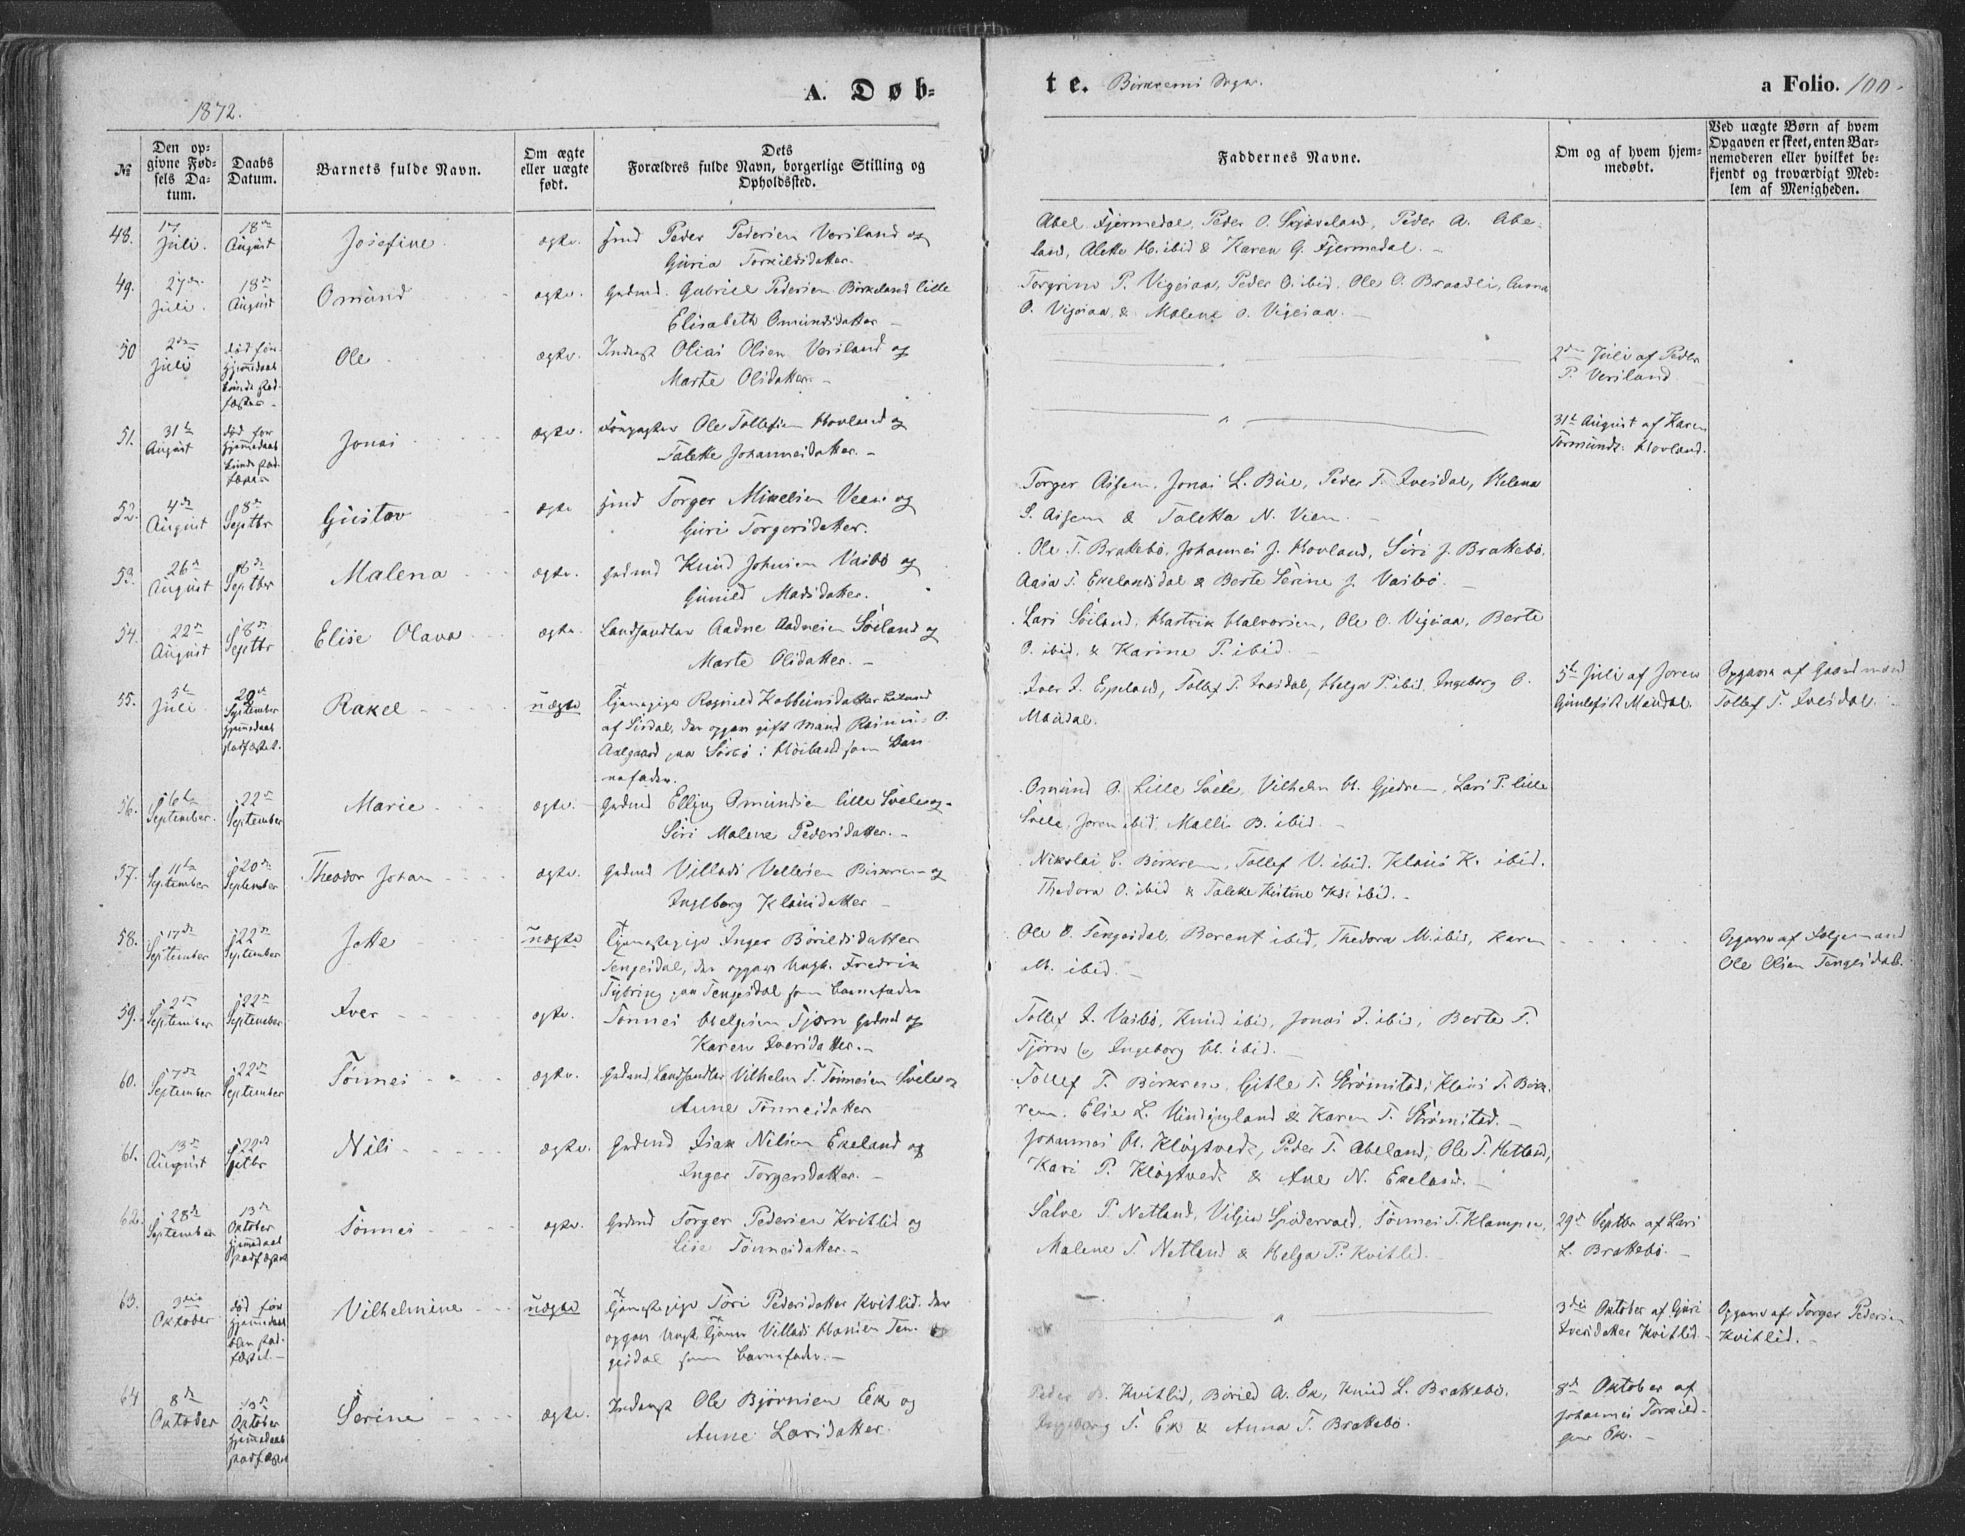 1872.
A. Døb-
te. Birkrems Sogn.
a Folio. 100.
№
Den op-
givne Fød-
sels Da-
tum.
Daabs
Datum.
Barnets fulde Navn.
Om ægte
eller uægte
født.
Dets
Forældres fulde Navn, borgerlige Stilling og
Opholdssted.
Faddernes Navne.
Om og af hvem hjem-
medøbt.
Ved uægte Børn af hvem
Opgaven er skeet, enten Bar-
nemoderen eller hvilket be-
kjendt og troværdigt Med-
lem af Menigheden.
48. 17 Juli. 18de August Josefine ægte. Peder Pedersen Versland og
Guria Torkildsdatter.
Abel Fjermedal, Peder O. Skjæveland, Peder A. Abe-
land, Alette H. ibid & Karen G. Fjermedal.
49. 27de Juli. 18de August Omund ægte. Gaardmd. Gabriel Pedersen Birkeland lille
Elisabeth Omundsdatter
Torgrim P. Vigesaa, Peder O. ibid, Ole O. Braadli, Anna
O. Vigesaa & Malene O. Vigesaa.
50 2den Juli død før
Hjemmedaab
kunde stad-
fæstes Ole ægte. Inderst Olias Olsen Versland og
Marte Olsdatter.
2den Juli af Peder
P. Versland
51. 31te August død før
Hjemmedaab
kunde stad-
fæstes Jonas ægte. Ole Tollefsen Hovland og
Talette Johannesdatter.
31te August af Karen
Hovland.
52. 4de August 8de Septbr Gustav ægte Torger Mikelsen Veen og
Guri Torgersdatter.
Torger Aisen, Jonas L. Bue, Peder T. Ivesdal, Helena
S. Aisen & Taletta N. Veen.
53. 26de August 8de Septbr Malena ægte. Gaardmd Knud Johnsen Vasbø og
Gunild Madsdatter.
Ole T. Brakebø, Johannes J. Hovland, Siri J. Brakebø,
Aasa T. Ekelandsdal & Berte Serine J. Vasbø.
54. 22de August 8de Septbr Elise Olava ægte. Landhandler Aadne Aadnesen Søiland og
Marte Olsdatter.
Lars Søiland, Hartvik Halvorsen, Ole O. Vigesaa, Berte
O. ibid, & Karine P. ibid.
55. 5te Juli 29de
September
Hjemmedaab
stadfæstet. Rakel uægte Tjenestepige Ragnild
af Sirdal, der opgav gift Mand Rasmus O.
Aalgaard paa Sørbø i Høiland som Bar-
nefader.
Iver I. Espeland, Tollef T. Ivesdal, Helga P. ibid, Ingeborg O.
Maudal.
5te Juli af Joren
Maudal.
Opgaven af Gaardmand
Tollef T. Ivesdal.
56. 6te September. 22de September Marie ægte. Gaardmd Elling Omundsen lille Svele og
Siri Malene Pedersdatter.
Omund O. Lille Svele, Vilhelm H. Gjedrem, Lars P. lille
Svele, Joren ibid, Malli B. ibid.
57. 11te September 20de September Theodor Johan ægte. Gaardmd Villads Vellesen Birkrem og
Ingeborg Klausdatter
Nikolai E. Birkrem, Tollef V. ibid, Klaus K. ibid.
Thedora O. ibid & Taleke Kistine Kd. ibid.
58. 17de September 22de September Jette uægte Tjenestepige Inger Børildsdatter
Tengesdal, der opgav Ungk. Fredrik
Tybring paa Tengesdal som barnefader
Ole O. Tengesdal, Berent ibid, Thedora M. ibid, Karen
M. ibid.
Opgaven af
Ole Olsen Tengesdal.
59. 2den September 22de September Iver ægte. Tønnes Helgesen Tjørn Gaardmd og
Karen Iversdatter.
Tollef I. Vasbø, Knud ibid, Jonas I. ibid, Berte T.
Tjørn & Ingeborg H. ibid.
60. 7de September 22de September Tønnes ægte. Gaardmd Landhandler Vilhelm T. Tønnesen Svele og
Anne Tønnesdatter
Tollef T. Birkrem, Gitle T. Strømstad, Klaus T. Birk-
rem. Elie L. & Karen T. Strømstad.
61. 13de August 22de Septbr Nils ægte. Gaardmd Isak Nilsen Ekeland og
Inger Torgersdatter.
Johannes H. Kløgtvedt, Peder T. Abeland, Ole T. Hetland,
Kari P. Kløgtvedt & Ane N. Ekeland.
62. 28de September 13de
Oktober
Hjemmedaab
stadfæstet Tønnes ægte. Gaardmd Torger Pedersen Kvitlid og
Lise Tønnesdatter.
Salve P. Netland, Viljen Spødervold, Tønnes T. Klampen,
Malene T. Netland & Helga P. Kvitlid.
29de Septbr af Lars
L. Brakebø.
63. 3die Oktober død før
Hjemmedaab
blev stad-
fæstet. Vilhelmine uægte Tjenestepige Tori Pedersdatter Kvitlid. der
opgav Ungk. Tjener Villads Hansen Ten-
gesdal som barnefader.
3die Oktober af Guri
Iversdatter Kvitlid
Opgaven af Torger Pedersen
Kvitlid.
64 8de Oktober 13de
Oktober
Hjemmedaab
stadfæstet Serine ægte. Inderst Ole Bjørnsen Eek og
Anne Larsdatter
Peder B. Kvitlid, Børild A. Ek, Knud L. Brakebø.
Ingeborg T. Ek & Anna T. Brakebø.
8de Oktober af
Johannes Torkild-
sen Ek.